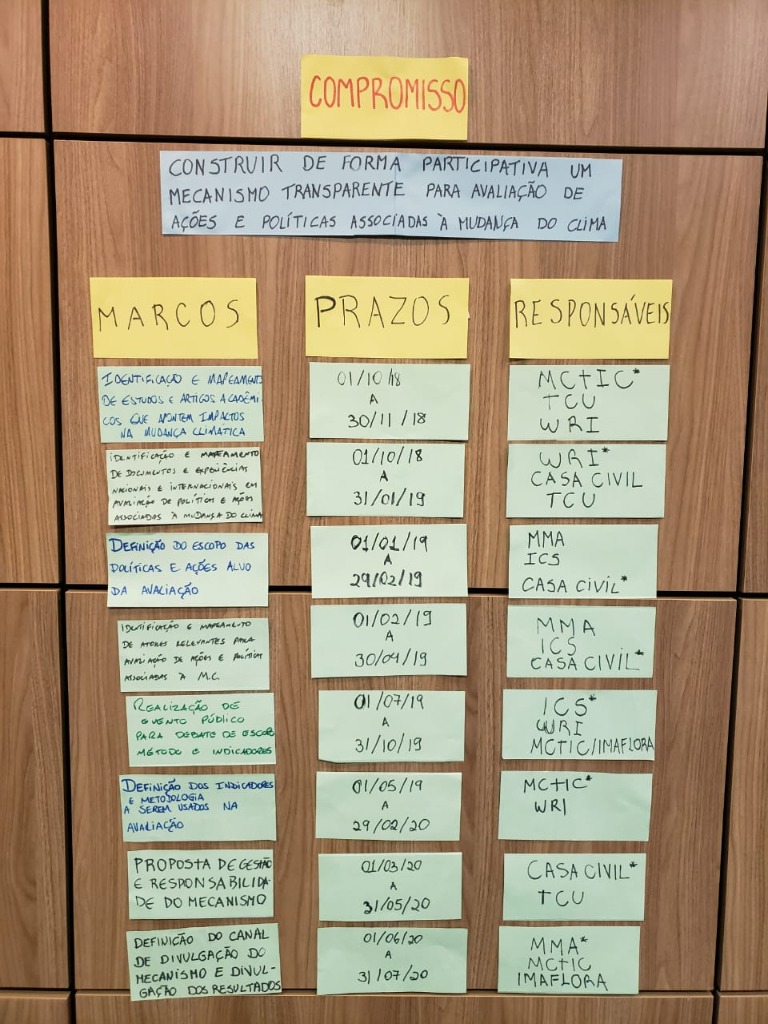 COMPROMISSO
CONSTRUIR DE FORMA PARTICIPATIVA UM
MECANISMO TRANSPARENTE PARA AVALIAÇÃO DE
AÇÕES E POLÍTICAS ASSOCIADAS À MUDANÇA DO CLIMA
MARCOS
PRAZOS
RESPONSÁVEIS
IDENTIFICAÇÃO E MAPEAMENTO
DE ESTUDOS E ARTIGOS ACADÊMI
COS QUE APONTEM IMPACTOS
NA MUDANÇA CLIMÁTICA
01/10/18
A
30/11/18
MCTIC*
TCU
WRI
IDENTIFICAÇÃO E MAPEAMENTO
DE DOCUMENTOS E EXPERIÊNCIAS
NACIONAIS E INTERNACIONAIS EM
AVALIAÇÃO DE POLÍTICAS E AÇÕES
ASSOCIADAS À MUDANÇA DO CLIMA
01/10/18
A
31/01/19
WRI*
CASA CIVIL
TCU
DEFINIÇÃO DO ESCOPO DAS
POLÍTICAS E AÇÕES ALVO
DA AVALIAÇÃO
01/01/19
A
29/02/19
MMA
ICS
CASA CIVIL*
IDENTIFICAÇÃO E MAPEAMENTO
DE ATORES RELEVANTES PARA
AVALIAÇÃO DE AÇÕES E POLÍTICAS
ASSOCIADAS À M.C.
01/02/19
A
30/04/19
MMA
ICS
CASA CIVIL*
REALIZAÇÃO DE
EVENTO PÚBLICO
PARA DEBATE DE ESCOPO
MÉTODO E INDICADORES
01/07/19
A
31/10/19
ICS*
WRI
MCTIC/IMAFLORA
DEFINIÇÃO DOS INDICADORES
E METODOLOGIA
A SEREM USADOS NA
AVALIAÇÃO
01/05/19
A
29/02/20
MCTIC*
WRI
PROPOSTA DE GESTÃO
E RESPONSABILIDA-
DE DO MECANISMO
01/03/20
A
31/05/20
CASA CIVIL*
TCU
DEFINIÇÃO DO CANAL
DE DIVULGAÇÃO DO
MECANISMO E DIVUL-
GAÇÃO DOS RESULTADOS
01/06/20
A
31/07/20
MMA*
MCTIC
IMAFLORA